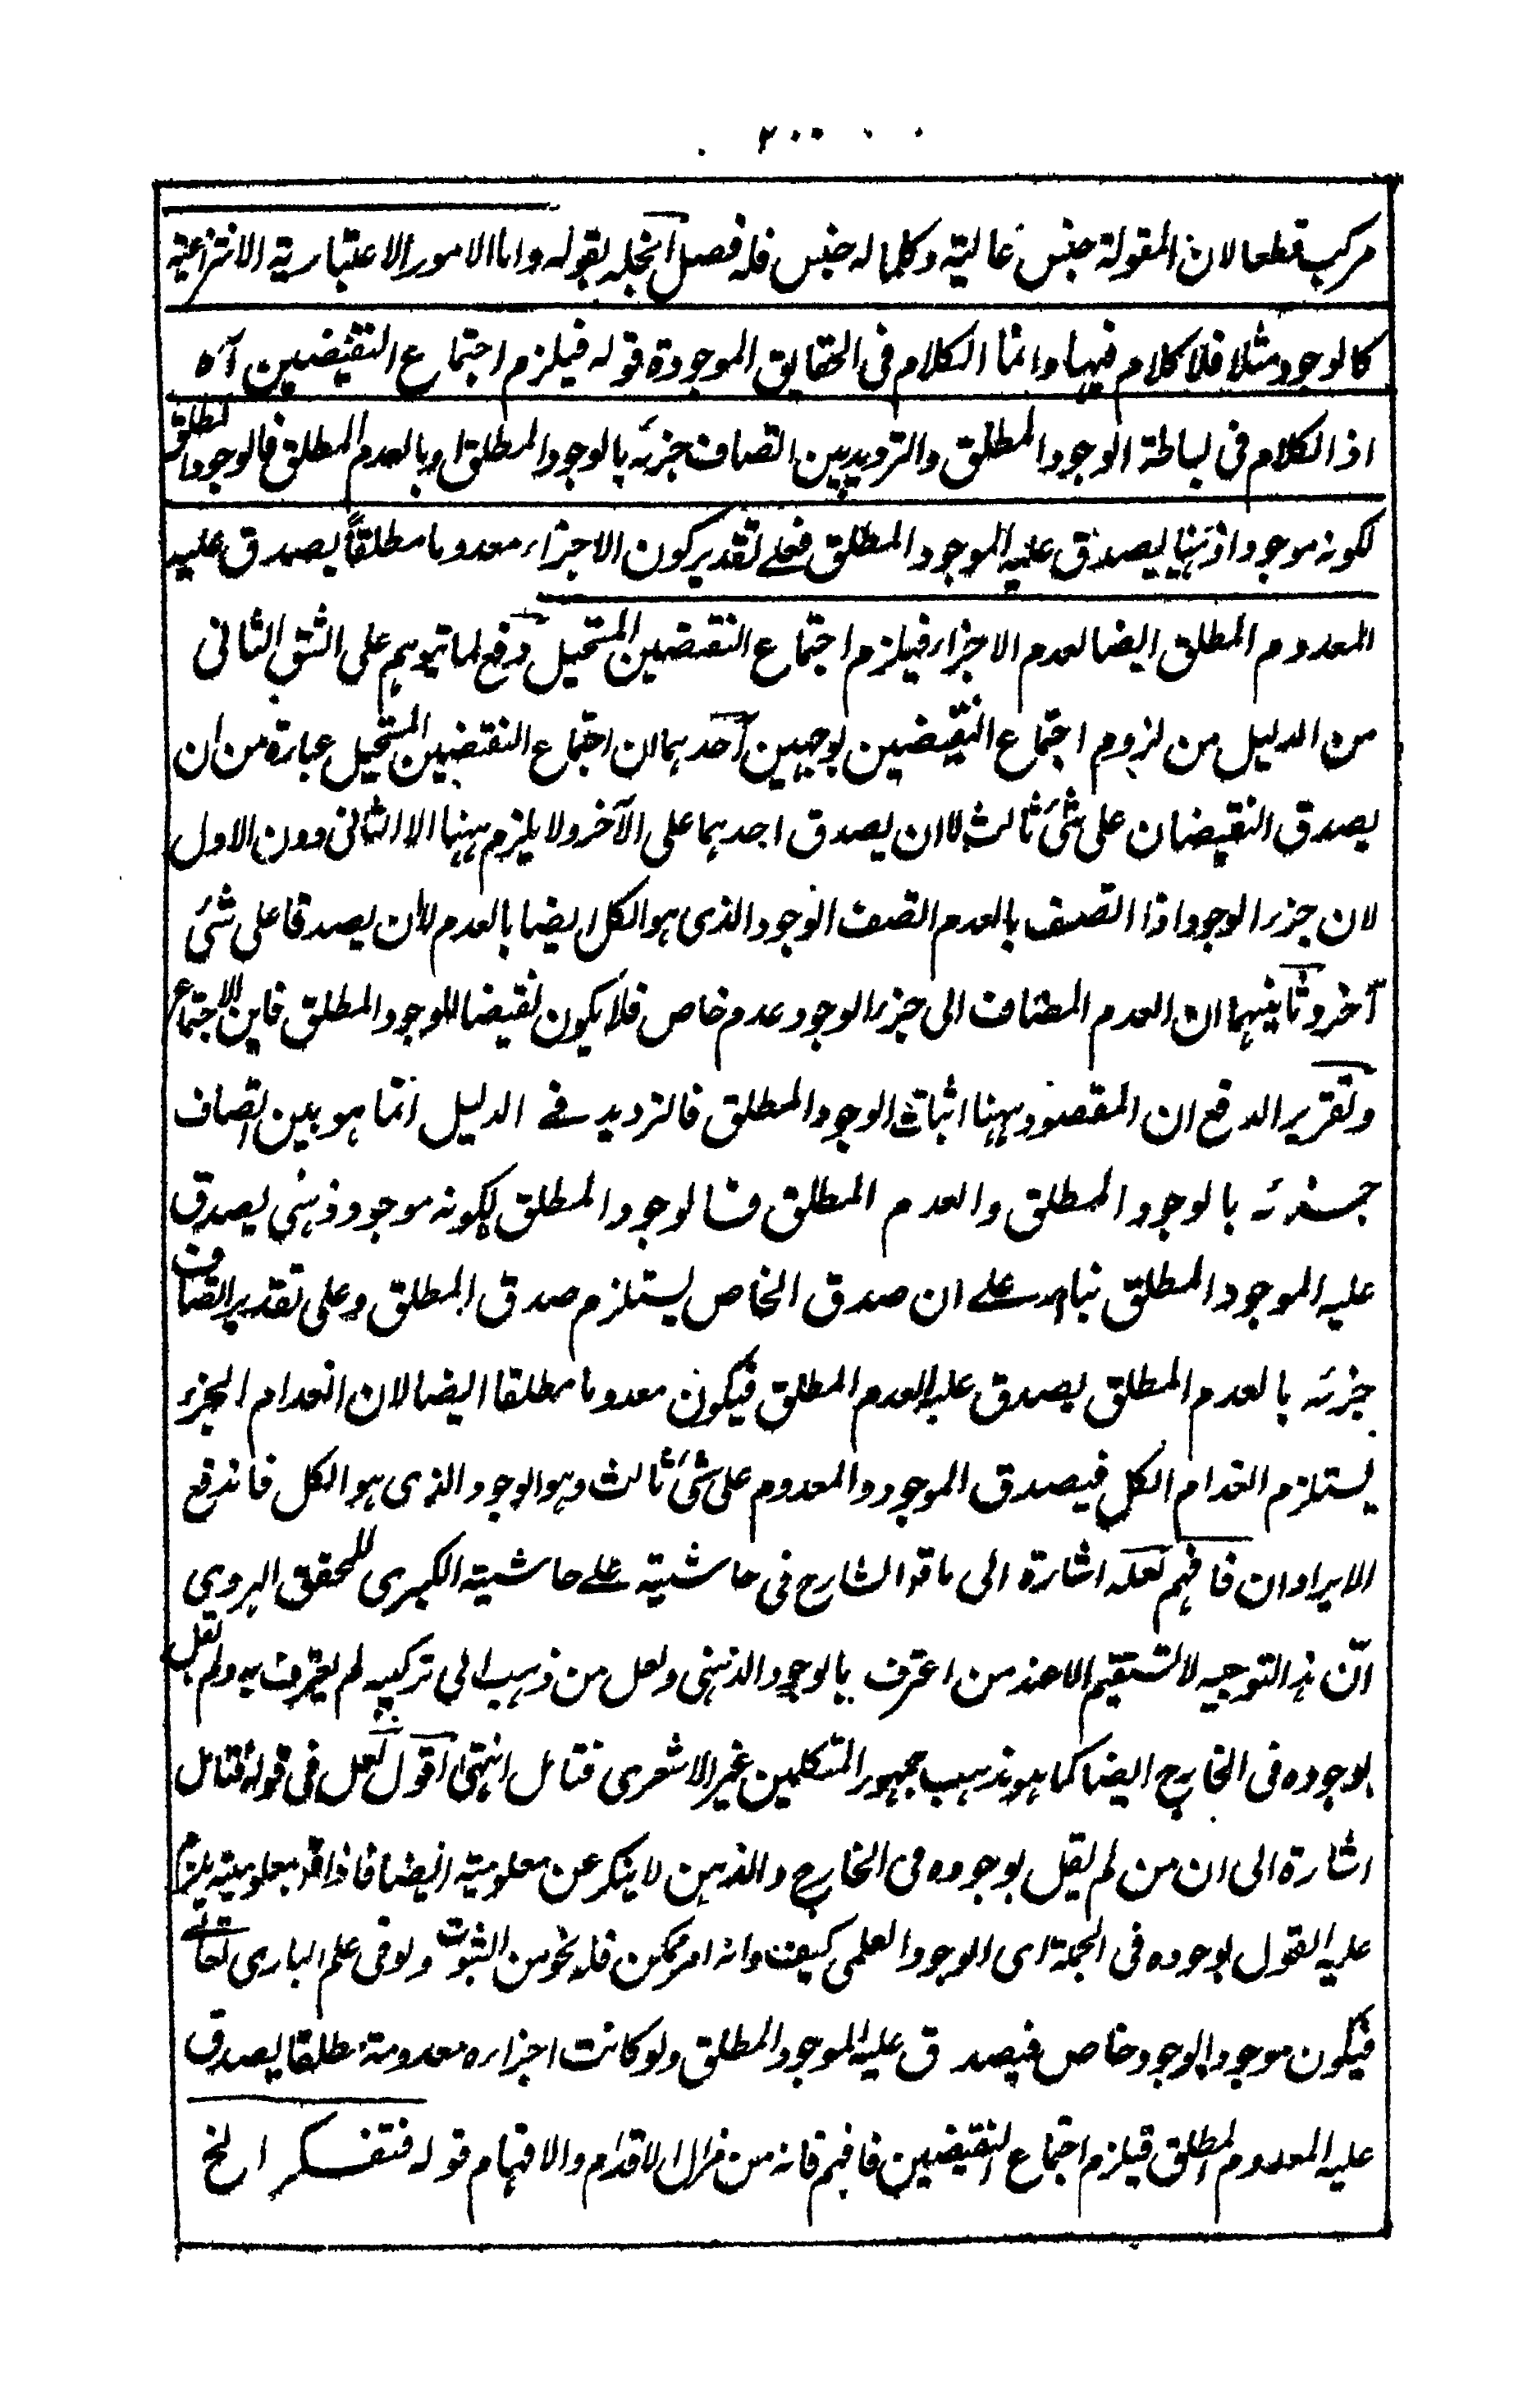 ٢٠٠
مركب قطعا لان المقولة جنس عالية وكلما له جنس فله فصل انجله بقوله واما الامور الاعتبارية الانتزاعية
كالوجود مثلا فلا كلام فيها وانما الكلام فى الحقايق الموجودة قوله فيلزم اجتماع النقيضين آه
اذ الكلام فى بساطة الوجود المطلق والترديد بين اتصاف جزئه بالوجود المطلق او بالعدم المطلق فالوجود المطلق
لكونه موجودا ذهنيا يصدق عليه الموجود المطلق فعلے تقدير كون الاجزاء معدوما مطلقاً يصدق عليه
المعدوم المطلق ايضا لعدم الاجزاء فيلزم اجتماع النقيضين المستحيل دفع لما يتوهم على الشق الثانى
من الدليل من لزوم اجتماع النقيضين بوجهين آحدهما ان اجتماع النقيضين المستحيل عبارة من ان
يصدق النقيضان على شئ ثالث لا ان يصدق احدهما على الآخر ولا يلزم ههنا الا الثانى دون الاول
لان جزء الوجود اذا اتصف بالعدم اتصف الوجود الذى هو الكل ايضا بالعدم لا ان يصدقا على شئ
آخر وثانيهما ان العدم المضاف الى جزء الوجود عدم خاص فلا يكون نقيضا للوجود المطلق فاين الاجتماع
وتقرير الدفع ان المقصود ههنا اثبات الوجود المطلق فالترديد فے الدليل انما هو بين اتصاف
جزئه بالوجود المطلق والعدم المطلق فالوجود المطلق لكونه موجود ذهنى يصدق
عليه الموجود المطلق بناء علے ان صدق الخاص يستلزم صدق المطلق وعلى تقدير اتصاف
جزئه بالعدم المطلق يصدق عليه العدم المطلق فيكون معدوما مطلقا ايضا لان انعدام الجزء
يستلزم انعدام الكل فيصدق الموجود والمعدوم على شئ ثالث وهو الوجود الذى هو الكل فاندفع
الايرادان فافهم لعله اشارة الى ما قد الشارح فى حاشيته علے حاشيته الكبرى للمحقق الهروى
انّ هذا التوجيه لا يستقيم الا عند من اعترف بالوجود الذهنى ولعل من ذهب الى تركيبه لم يعترف به ولم يقل
بوجوده فى الخارج ايضا كما هو مذهب جمهور المتكلمين غير الاشعرى فتامل انتهى اقول لعل فى قوله فتامل
اشارة الى ان من لم يقل بوجوده فى الخارج والذهن لا ينكر عن معلوميته ايضا فاذا قد بمعلوميته يلزم
عليه القول بوجوده فى الجملة اى الوجود العلمى كيف وانه امر ممكن فله نحو من الثبوت ولو فى علم البارى تعالے
فيكون موجودا بوجود خاص فيصدق عليه الموجود المطلق ولو كانت اجزاءه معدومة مطلقا يصدق
عليه المعدوم المطلق فيلزم اجتماع النقيضين فافهم فانه من مزال الاقدام والافهام قوله فتفكر الخ